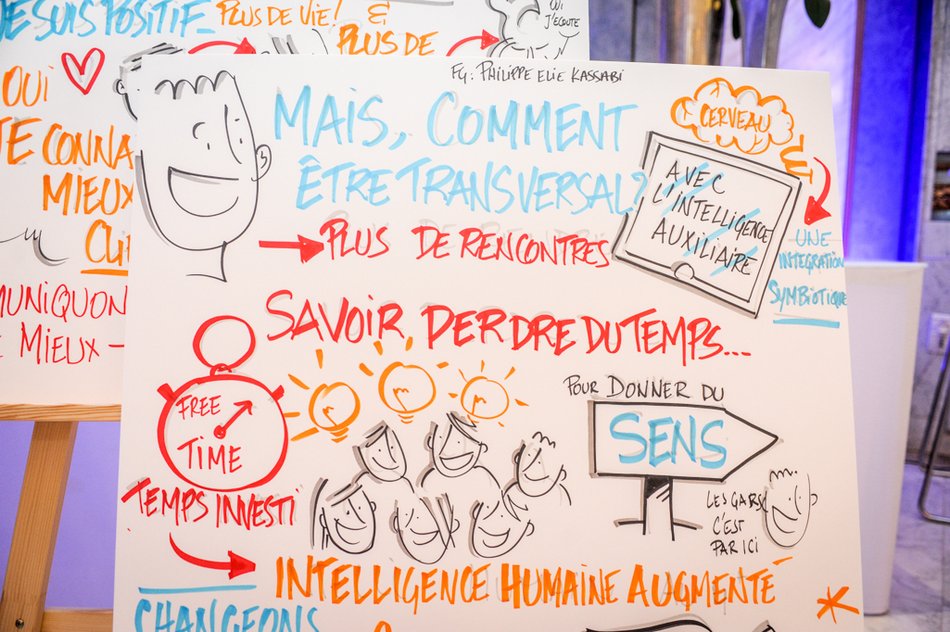 JE SUIS POSITIF
PLUS DE VIE! &
PLUS DE
OUI
J'ÉCOUTE
OUI
CONNA
MIEUX
MUNIQUON
MIEUX -
FG: PHILIPPE ELIE KASSABI
MAIS, COMMENT
ÊTRE TRANSVERSAL?
PLUS DE RENCONTRES
CERVEAU
AVEC
L'INTELLIGENCE
AUXILIAIRE
UNE
INTEGRATION
SYMBIOTIQUE
SAVOIR PERDRE DU TEMPS...
FREE
TIME
TEMPS INVESTI
POUR DONNER DU
SENS
LES GARS
C'EST
PAR ICI
INTELLIGENCE HUMAINE AUGMENTÉ
*
CHANGEONS